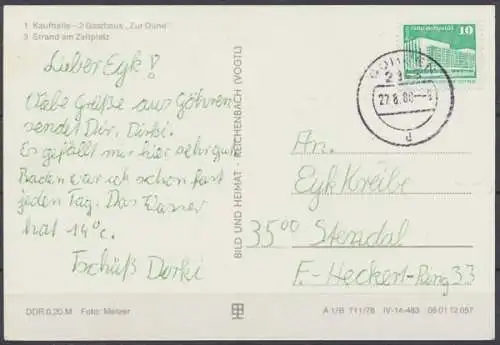 1 Kaufhalle – 2 Gasthaus „Zur Düne"
3 Strand am Zeltplatz
Lieber Eyk!
Liebe Grüße aus Göhren
sendet Dir, Dirki.
Es gefällt mir hier sehr gut.
Baden war ich schon fast
jeden Tag. Das Wasser
hat 14°c.
Tschüß Dorki
DDR 0,20 M Foto: Metzer
BILD UND HEIMAT · REICHENBACH (VOGTL)
10
GÖHREN
d
An.
Eyk Kreibe
3500 Stendal
F.-Heckert-Ring 33
A 1/B 711/78 IV-14-483 08 01 12 057